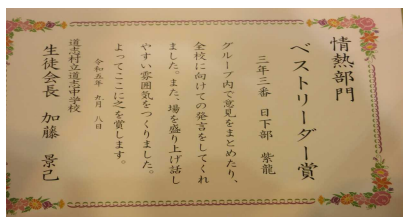 情熱部門
ベストリーダー賞
三年三番 日下部 紫龍
グループ内で意見をまとめたり、
全校に向けての発言をしてくれ
ました。また、場を盛り上げ話し
やすい雰囲気をつくりました。
よってここに之を賞します。
令和五年 九月 八日
道志村立道志中学校
生徒会長 加藤 景己